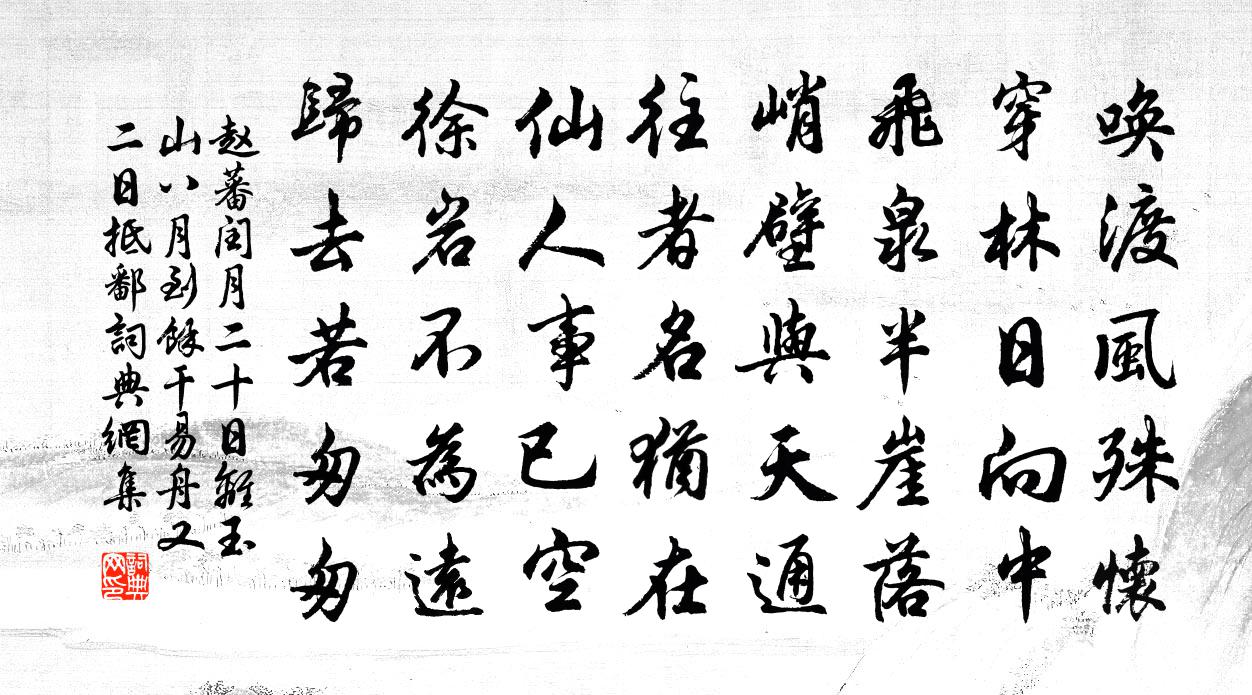 唤渡風殊懷
穿林日向中
飛泉半崖落
峭壁與天通
往者名猶在
仙人事已空
徐岩不為遠
歸去若匆匆
赵蕃閏月二十日離玉
山八月到餘干易舟又
二日抵鄱詞典網集
詞典
网印